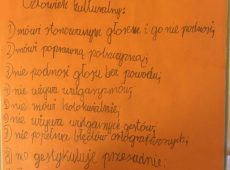 Człowiek kulturalny:
1) mówi stonowanym głosem i go nie podnosi,
2) mówi poprawną polszczyzną,
3) nie podnosi głosu bez powodu,
4) nie używa wulgaryzmów,
5) nie mówi kolokwialnie,
6) nie używa wulgarnych gestów,
7) nie popełnia błędów ortograficznych,
8) no gestykuluje przesadnie.